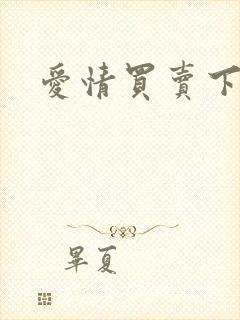 愛情買賣下
畢夏